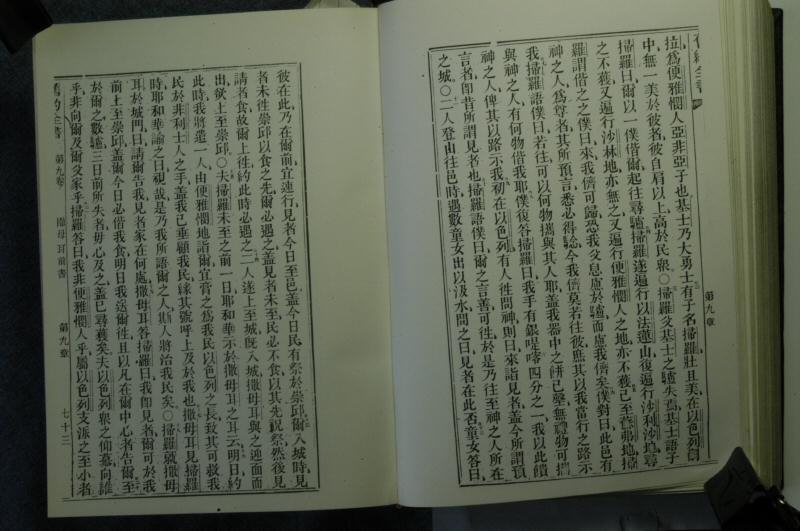 拉爲便雅憫人亞非亞子也基士乃大勇士有子名掃羅壯且美在以色列
中無一美於彼者彼自肩以上高於民衆○掃羅父基士之驢失焉基士語子
掃羅曰爾以一僕偕爾起往尋驢掃羅遂遍行以法蓮山復遍行沙利沙地尋
之不獲又遍行沙林地亦無之又遍行便雅憫人之地亦不獲已至蘇弗地掃
羅謂偕之之僕曰來我儕可歸恐我父息慮於驢而慮我儕矣僕對曰此邑有
神之人爲尊者其所預言悉必得驗今我儕莫若往彼庶其以我當行之路示
我掃羅語僕曰若往可以何物攜與其人耶蓋我器中之餅已罄無禮物可攜
與神之人有何物偕我耶僕復答掃羅曰我手有銀四分之一我以此饋
神之人俾其以路示我初在以色列有人往問神則曰來詣見者蓋今所謂預
言者卽昔所謂見者也掃羅語僕曰爾之言善可往於是乃往至神之人所在
之城○二人登山往邑時遇數童女出以汲水問之曰見者在此否童女答曰
第九章
彼在此乃在爾前宜速行見者今日至邑蓋今日民有祭於崇邱爾入城時見
者未往崇邱以食之先爾必遇之蓋見者未至民必不食以其先祝祭然後見
請者食故爾上往約此時必遇之二人遂上至城旣入城撒母耳與之迎面而
出欲上至崇邱○夫掃羅未至之前一日耶和華示於撒母耳之耳云明日約
此時我將遣一人由便雅憫地詣爾宜膏之爲我民以色列之長致其可救我
民於非利士人之手蓋我已垂顧我民緣其號呼上及於我也撒母耳見掃羅
時耶和華諭之曰視哉是乃我所語爾之人斯人將治我民矣○掃羅就撒母
耳於城門曰請爾告我見者家在何處撒母耳答掃羅曰我卽見者爾可於我
前上至崇邱蓋爾今日必偕我食明日我送爾往且以凡在爾中心者告爾至
於爾之數驢三日前所失者毋心及之蓋已尋獲矣夫以色列衆之仰慕向誰
乎非向爾及爾父家乎掃羅答曰我非便雅憫人乎屬以色列支派之至小者
舊約全書 第九卷 撒母耳前書 第九章 七十三